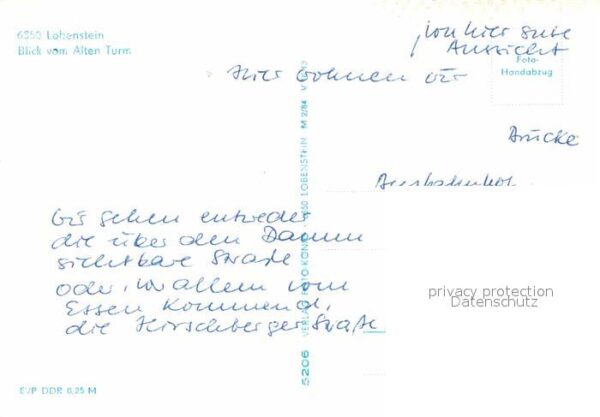 6850 Lobenstein
Blick vom Alten Turm
von hier gute
Aussicht
Hier wohnen wir
Foto-
Handabzug
Brücke
Wir gehen entweder
die über den Damm
sichtbare Straße
oder, vor allem vom
Essen kommend,
die Hirschberger Straße
privacy protection
Datenschutz
5206 VERLAG FOTO-KÖNIG 6850 LOBENSTEIN M 2/84
EVP DDR 0,25 M